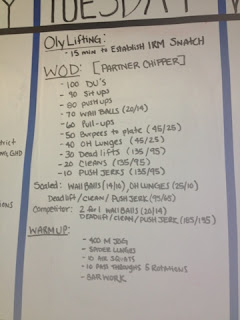 Y TUESDAY W
Oly Lifting:
- 15 min to Establish 1RM SNATCH
WOD: [PARTNER CHIPPER]
- 100 DU's
- 90 Sit ups
- 80 pushups
- 70 WALL BALLS (20/14)
- 60 Pull-ups
- 50 Burpees to plate (45/25)
- 40 OH LUNGES (45/25)
- 30 Dead lifts (135/95)
- 20 CLEANS (135/95)
- 10 PUSH JERKS (135/95)
Scaled: WALL BALLS (14/10), OH LUNGES (25/10)
Dead lift/clean/PUSH JERK (95/65)
Competitor: 2 for 1 WALL BALLS (20/14)
DEADLIFT/CLEAN/PUSH JERK (185/135)
WARMUP:
- 400 M JOG
- SPIDER LUNGES
- 10 AIR SQUATS
- 10 PASS THROUGHS & ROTATIONS
- BAR WORK
trict
ng, GHD